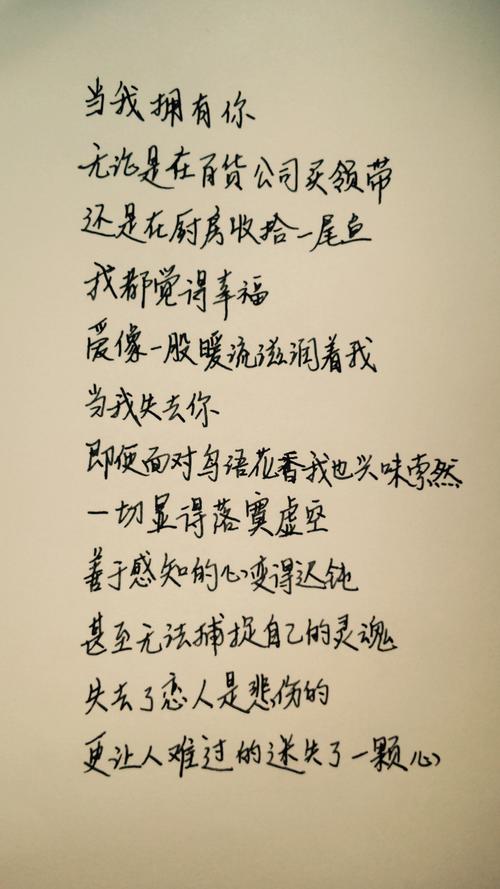 当我拥有你
无论是在百货公司买领带
还是在厨房收拾一尾鱼
我都觉得幸福
爱像一股暖流滋润着我
当我失去你
即便面对鸟语花香我也兴味索然
一切显得落寞虚空
善于感知的心变得迟钝
甚至无法捕捉自己的灵魂
失去了恋人是悲伤的
更让人难过的迷失了一颗心